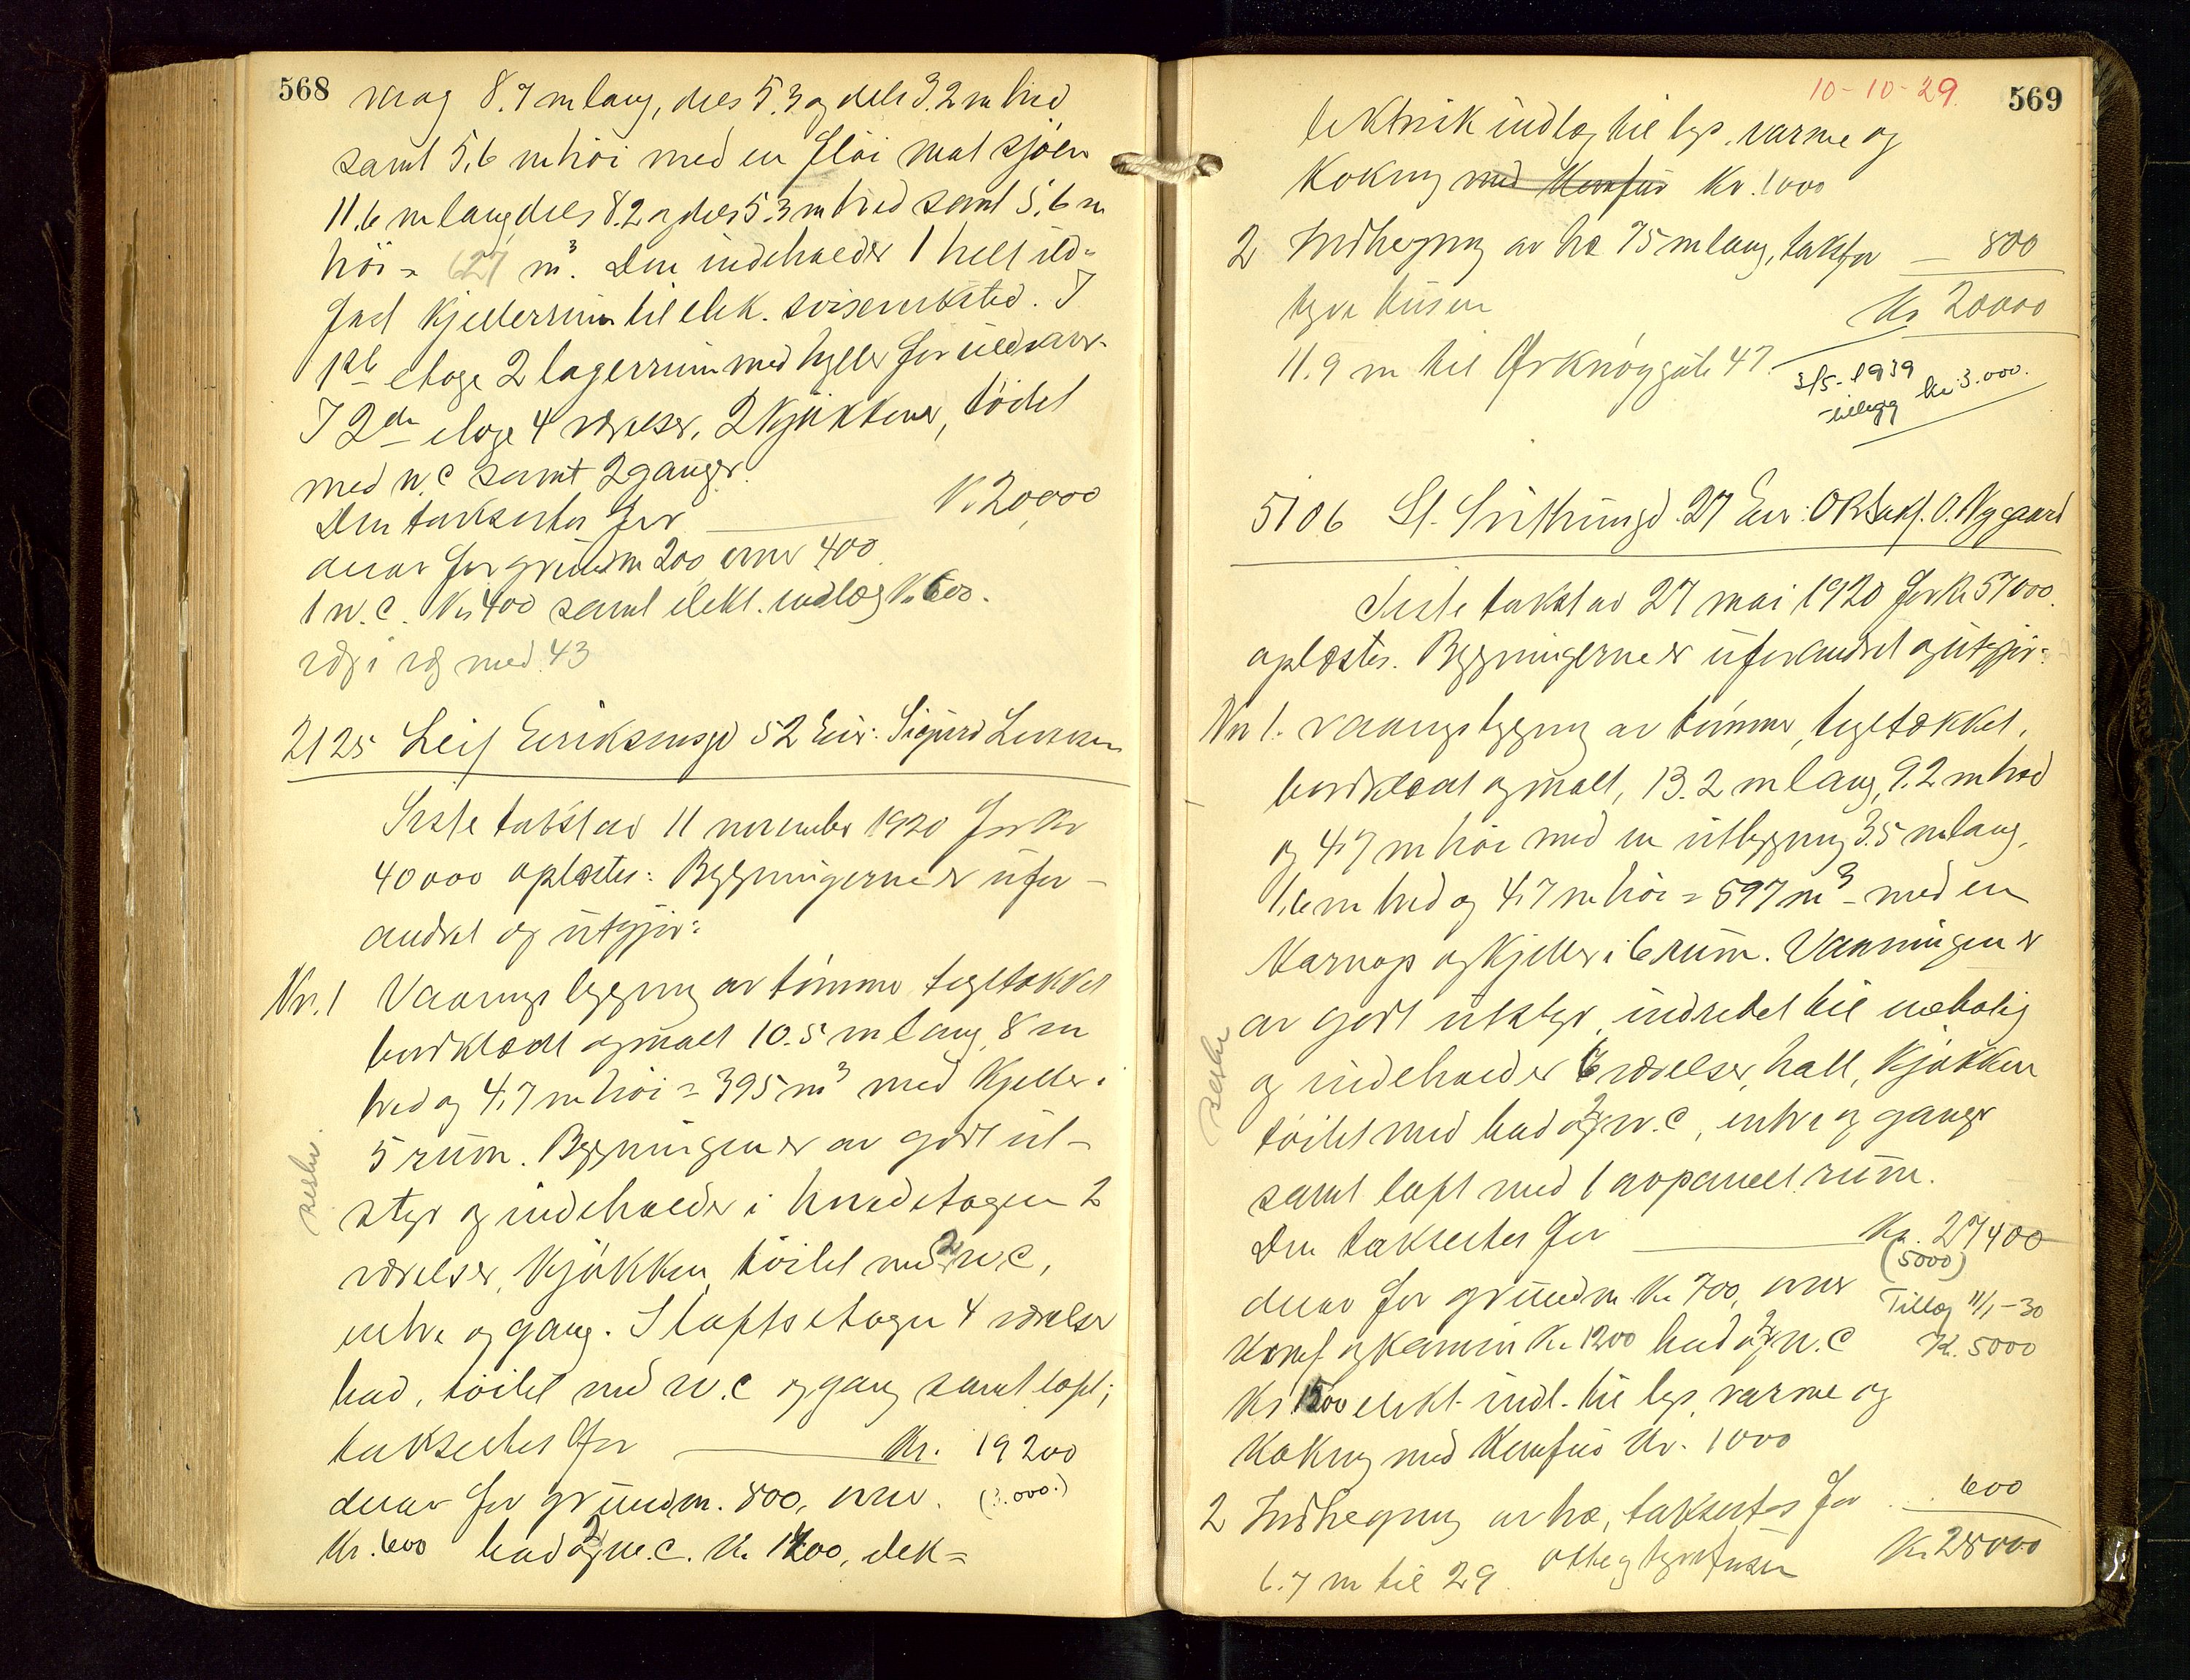 568
8.7 m lang, dels 5.3 og dels 3.2 m bred
samt 5,6 m höi med en flöi mot sjöen
11.6 m lang, dels 8.2 og dels 5.3 m bred samt 5.6 m
höi = 627 m³. Den indeholder 1 helt ild-
fast kjellerrum til elek. sveiseverksted. I
1ste etage 2 lagerrum med hyller for
I 2den etage 4 værelser, 2 kjøkkener, töilet
med w.c samt 2 ganger.
Den takseres for K 20,000
derav for grundm 200 ovner 400
1 w.c. Kr 400 samt elekt. indlæg Kr 600.
væg i væg med 43
2125 Leif Eiriksonsgd 52 Eier: Sigurd
Siste takst av 11 november 1920 for Kr
40000 oplæstes: Bygningerne er ufor-
andret og utgjör:
Nr. 1 Vaaningsbygning av tömmer tegltækket
bordklædt og malt 10.5 m lang, 8 m
bred og 4,7 m höi = 395 m³ med Kjeller i
5 rum. Bygningen er av godt ut-
styr og indeholder i hovedetagen 2
værelser, kjökken, töilet med w.c,
entre og gang. I loftsetagen 4 værelser
bad, töilet med w.c og gang samt loft;
takseres for Kr. 19200
derav for grundm. 800, ovner (3.000.)
Kr. 600 bad og 2 w.c. Kr 1200, elek=
10-10-29. 569
lektrisk indlæg til lys, varme og
Kokning med Komfur Kr. 1000
2 Indhegning av træ 75 m lang, taks for — 800
Kr 20000
11.9 m til Ørknöygate 47.
3/5-1939
tillegg kr 3.000.
5106 St. Svithunsgd. 27 Eier: O.R.Sakf. O. Nygaard
Siste takst av 27 mai 1920 for Kr 57000.
oplæstes. Bygningerne er uforandret og utgjör:
Nr 1. Vaaningsbygning av tömmer, tegltækket,
bordklædt og malt, 13.2 m lang, 9.2 m bred
og 4,7 m höi med en utbygning 3.5 m lang,
1,6 m bred og 4,7 m höi = 597 m³ - med en
Karnap og Kjeller i 6 rum. Vaaningen er
av godt utstyr, indredet til enebolig
og indeholder 6 værelser, hall, Kjøkken
töilet med bad og 2 w.c, entre og ganger
samt loft med 1 avpanelt rum.
Den takseres for Kr. 27400
(5000)
derav for grundm. Kr 700, ovner
Tillæg 11/1-30
Komf. og Kamin Kr 1200 bad og 2 w.c
Kr. 5000
Kr 1500 elekt. indl. til lys, varme og
Kokning med Komfur Kr. 1000
2 Indhegning av træ, takseres for 600
Kr 28000
6.7 m til 29.